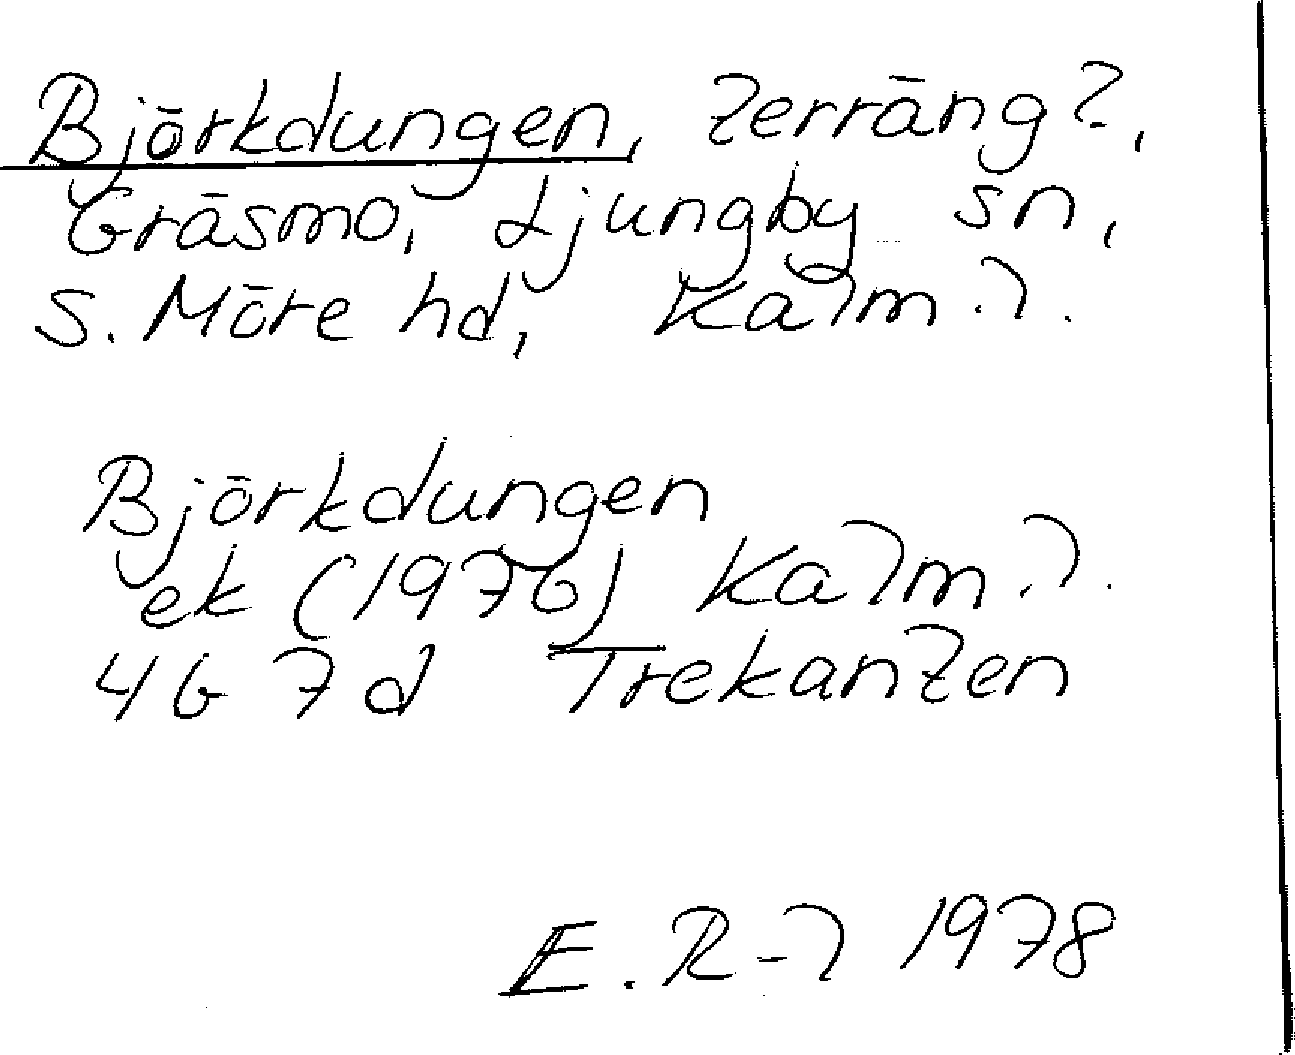 Björkdungen, terräng?,
Gräsmo, Ljungby sn,
S. Möre hd, Kalm.l.
Björkdungen
ek (1976) Kalm.l.
4G 7d Trekanten
E. R-l 1978